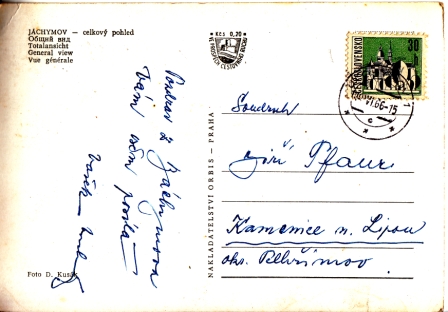 JÁCHYMOV — celkový pohled
Общий вид
Totalansicht
General view
Vue générale
Kčs 0,20
VE PROSPĚCH CESTOVNÍHO RUCHU
30 h
ČESKOSLOVENSKO
VI.66-15
Pozdrav z
Jáchymova
Vám všem posílá
NAKLADATELSTVÍ ORBIS — PRAHA
Soudruh
Jiří Pfaur
Kamenice n. Lipou
okr. Pelhřimov
Foto D. Kusák